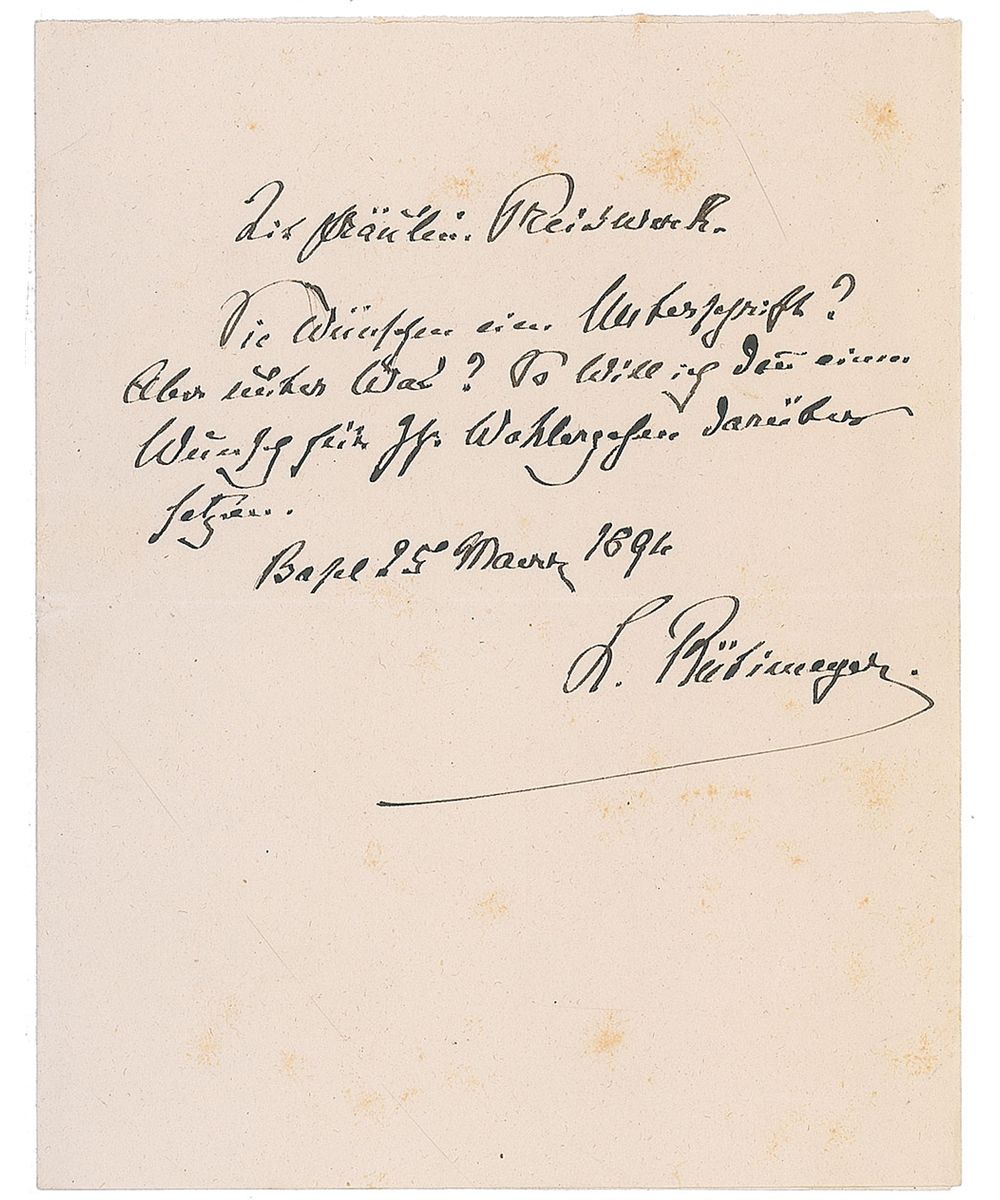 Fräulein. Preiswerk.
Sie Wünschen eine Unterschrift?
Aber unter Was? So Will ich den̄ einen
Wunsch für Ihr Wohlergehen darüber
setzen.
Basel 25 Maerz 1894
L. Rütimeyer.